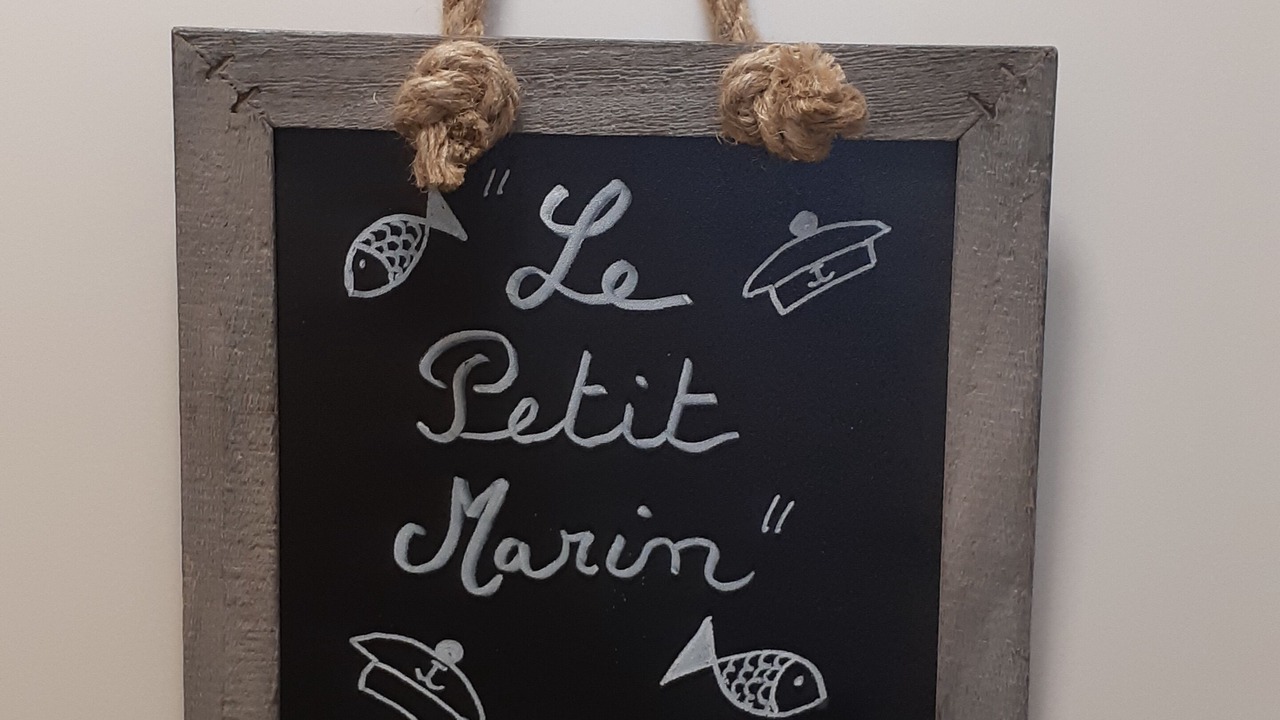 " Le
Petit
Marin "